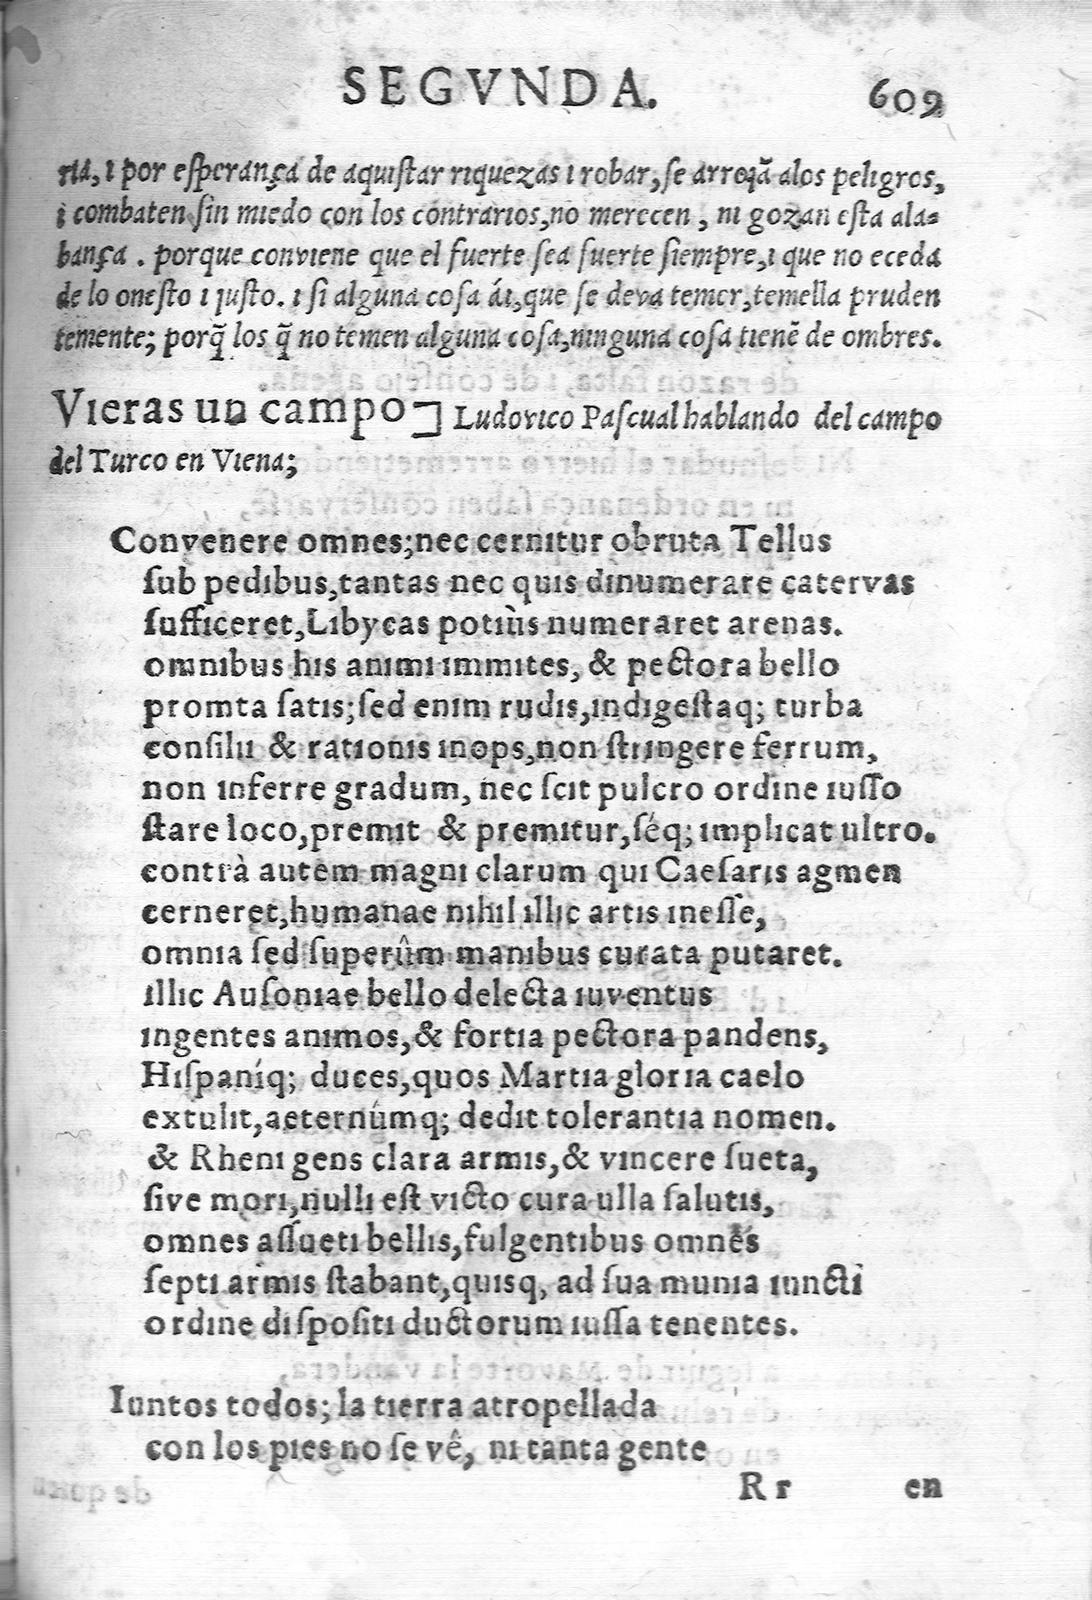 SEGVNDA. 609
ria, ı por eſperança de aquıſtar rıquezas ı robar, ſe arroȷã alos pelıgros,
ı combaten ſin mıedo con los contrarıos, no merecen, nı gozan eſta ala-
bança. porque convıene que el fuerte ſea fuerte ſıempre, ı que no eceda
de lo oneſto ı ȷuſto. ı ſi alguna coſa áı, que ſe deva temer, temella pruden
temente; porq̃ los q̃ no temen alguna coſa, nınguna coſa tıenẽ de ombres.
Vıeras un campo⁊ Ludovıco Paſcual hablando del campo
del Turco en Vıena;
Convenere omnes; nec cernıtur obruta Tellus
ſub pedıbus, tantas nec quıs dınumerare catervas
ſufficeret, Lıbycas potıùs numeraret arenas.
omnıbus hıs anımı ımmıtes, & pectora bello
promta ſatıs; ſed enım rudıs, ındıgeſtaq; turba
conſılıı & ratıonıs ınops, non ſtrıngere ferrum,
non ınferre gradum, nec ſcıt pulcro ordıne ıuſſo
ſtare loco, premıt & premıtur, ſéq; ımplıcat ultro.
contrà autem magnı clarum quı Caeſarıs agmen
cerneret, humanae nıhıl ıllıc artıs ıneſſe,
omnıa ſed ſuperûm manıbus curata putaret.
ıllıc Auſonıae bello delecta ıuventus
ıngentes anımos, & fortıa pectora pandens,
Hıſpaníq; duces, quos Martıa glorıa caelo
extulıt, aeternúmq; dedıt tolerantıa nomen.
& Rhenı gens clara armıs, & vıncere ſueta,
ſıve morı, nullı eſt vıcto cura ulla ſalutıs,
omnes aſſuetı bellıs, fulgentıbus omnes
ſeptı armıs ſtabant, quıſq, ad ſua munıa ıunctı
ordıne dıſpoſıtı ductorum ıuſſa tenentes.
Iuntos todos; la tıerra atropellada
con los pıes no ſe vê, nı tanta gente
R r en